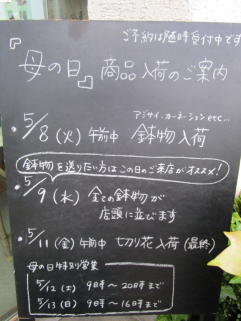 ご予約は随時受付中です
『母の日』商品入荷のご案内
アジサイ・カーネーション etc...
・5/8(火)午前中 鉢物入荷
鉢物を送りたい方はこの日のご来店がオススメ!
・5/9(水)全ての鉢物が
店頭に並びます
・5/11(金)午前中 切り花入荷(最終)
母の日特別営業
5/12(土) 9時〜20時まで
5/13(日) 9時〜16時まで